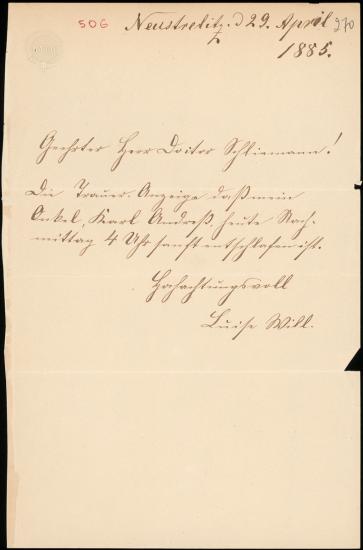 506
Neustrelitz. d 29. April 270
1885.
Geehrter Herr Doctor Schliemann!
Die Trauer-Anzeige daß mein
Onkel, Karl Andreß, heute Nach-
mittag 4 Uhr sanft entschlafen ist.
Hochachtungsvoll
Luise Will.